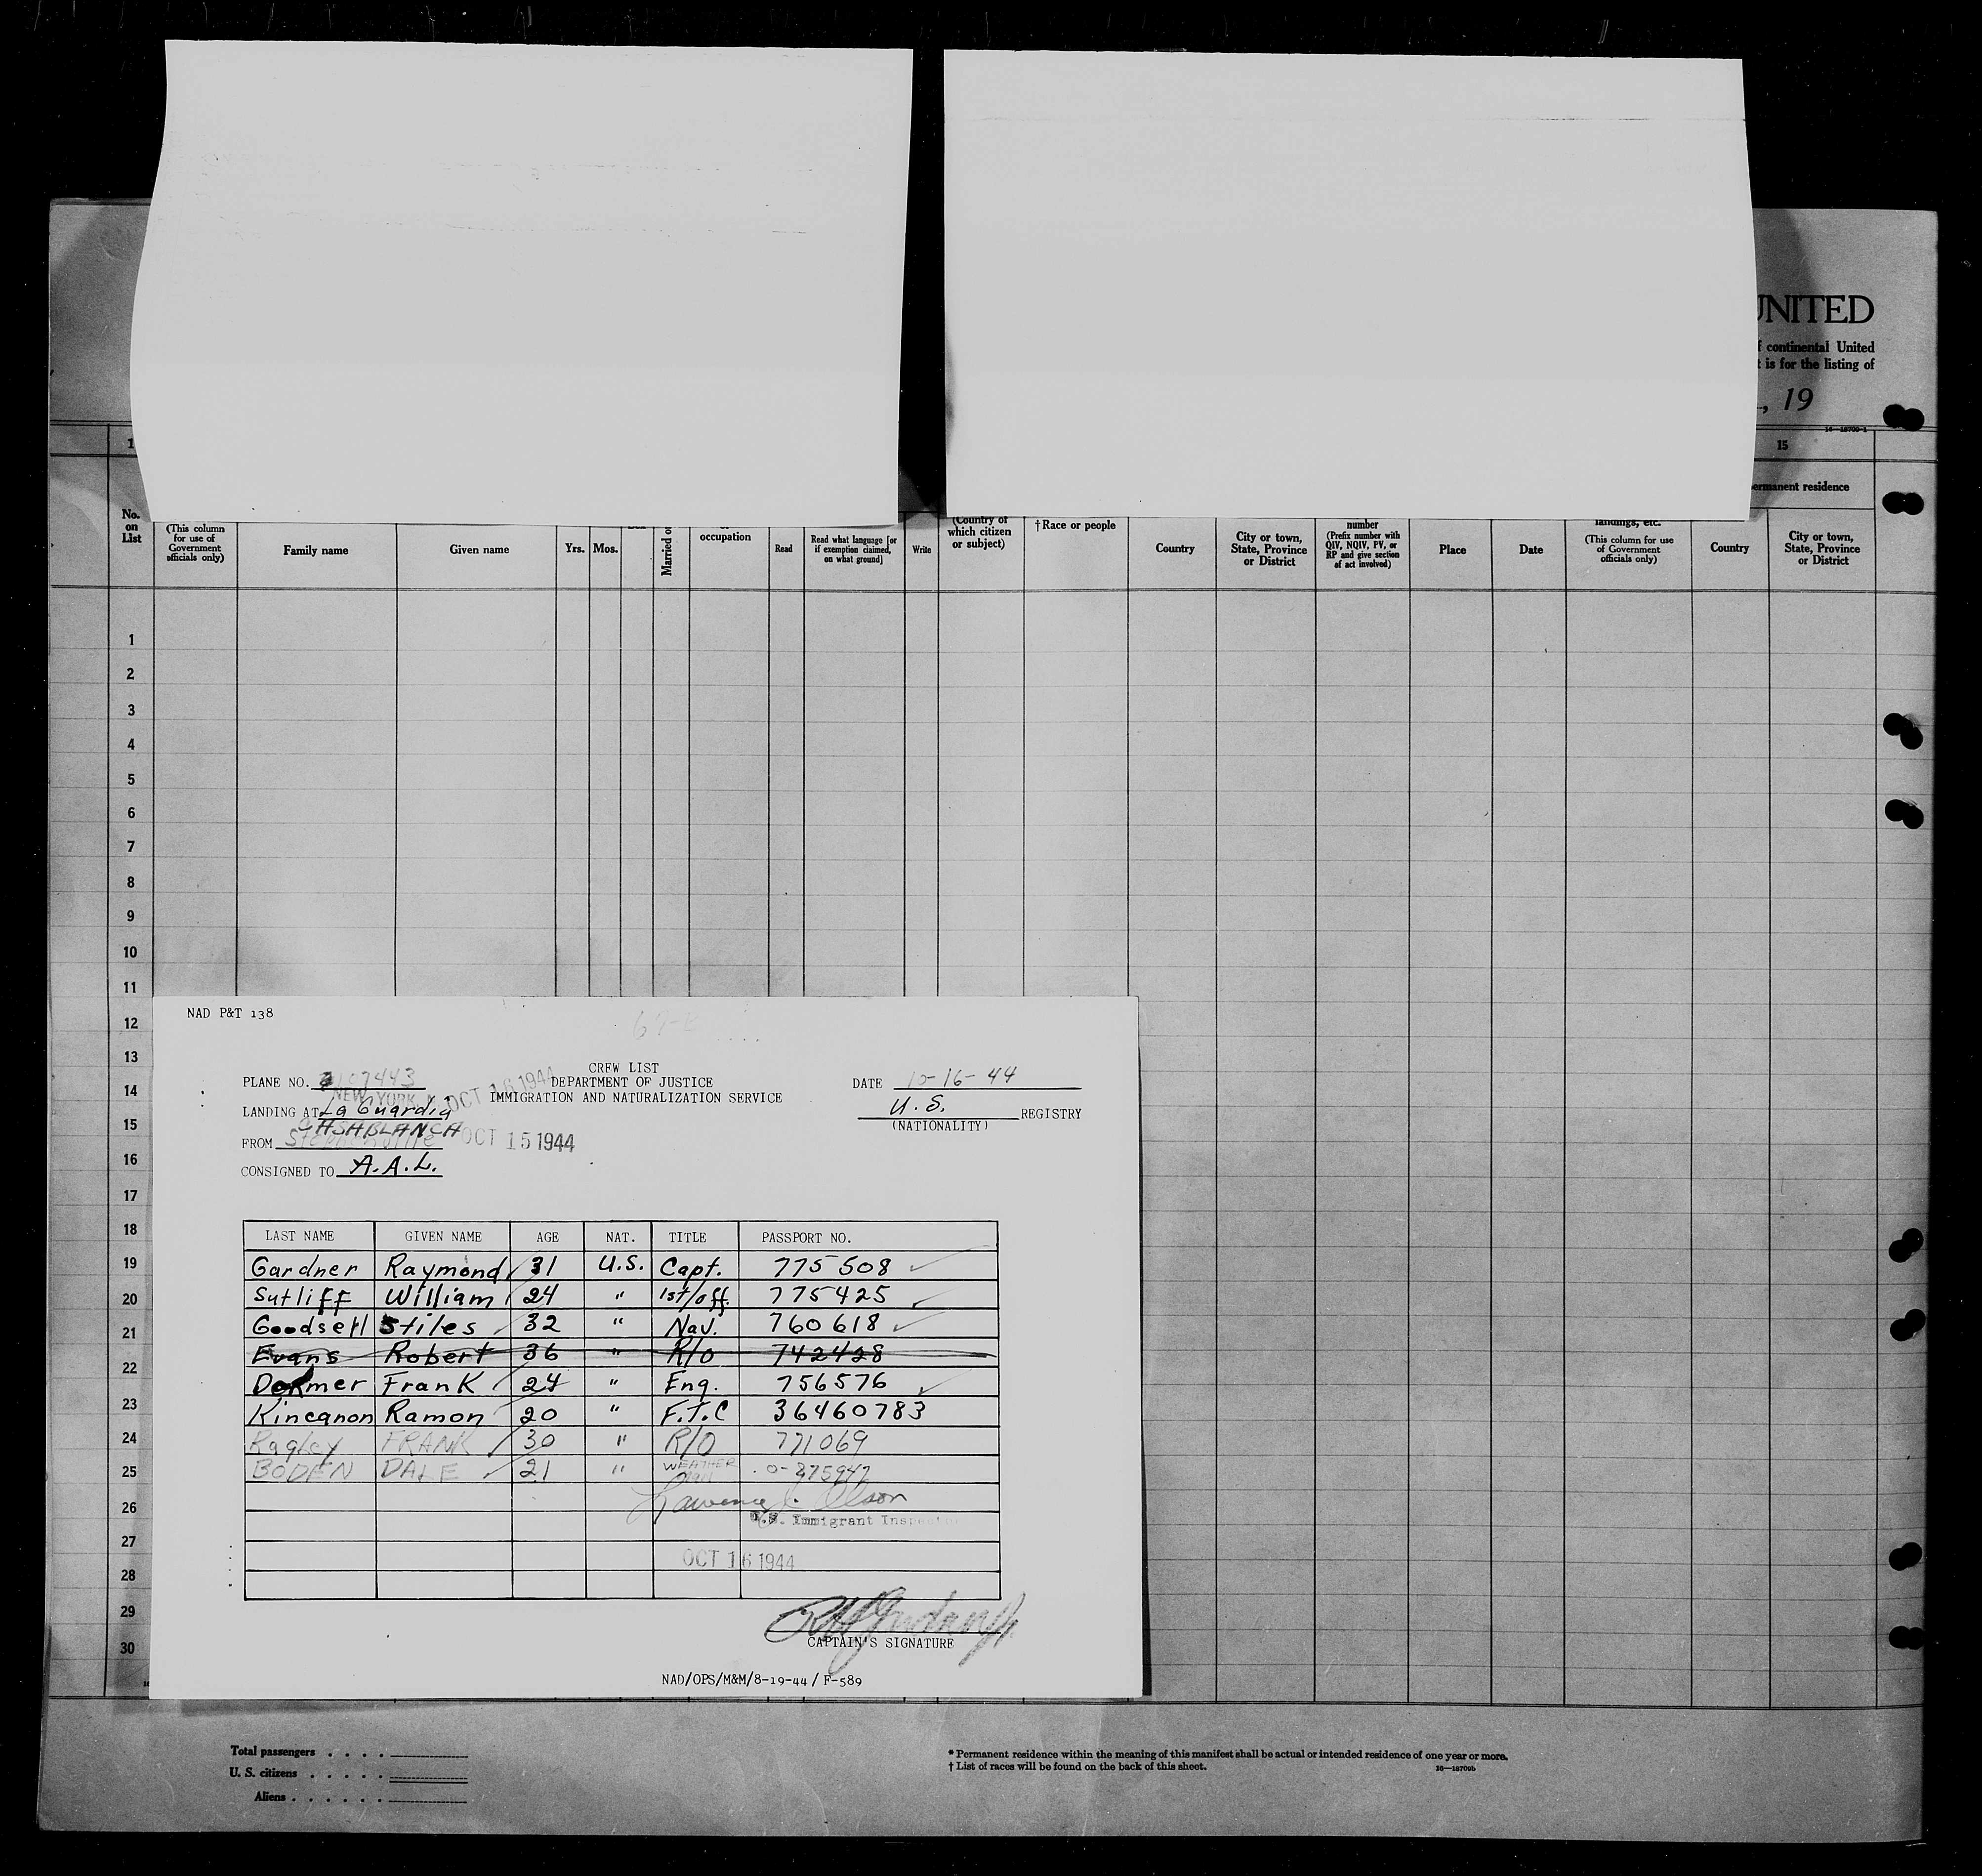 UNITED
f continental United
t is for the listing of
, 19
16—18709-1
1
15
ermanent residence
No. on List
(This column for use of Government officials only)
Family name
Given name
Yrs.
Mos.
Married or
occupation
Read
Read what language [or if exemption claimed, on what ground]
Write
(Country of which citizen or subject)
†Race or people
Country
City or town, State, Province or District
number (Prefix number with QIV, NQIV, PV, or RP and give section of act involved)
Place
Date
landings, etc. (This column for use of Government officials only)
Country
City or town, State, Province or District
1
2
3
4
5
6
7
8
9
10
11
12
13
14
15
16
17
18
19
20
21
22
23
24
25
26
27
28
29
30
NAD P&T 138
CREW LIST
DEPARTMENT OF JUSTICE
IMMIGRATION AND NATURALIZATION SERVICE
PLANE NO. 7443
DATE 10-16-44
NEW YORK OCT 16 1944
LANDING AT La Guardia
U.S. REGISTRY
(NATIONALITY)
CASABLANCA
FROM Stephenville OCT 15 1944
CONSIGNED TO A.A.L.
LAST NAME GIVEN NAME AGE NAT. TITLE PASSPORT NO.
Gardner Raymond 31 U.S. Capt. 775508
Sutliff William 24 " 1st/off. 775425
Goodsell Stiles 32 " Nav. 760618
Evans Robert 36 " R/O 742428
Dormer Frank 24 " Eng. 756576
Kincanon Ramon 20 " F.T.C 36460783
Ragley FRANK 30 " R/O 771069
BODEN DALE 21 " WEATHER O-875947
Lawrence Olson
U.S. Immigrant Inspector
OCT 16 1944
CAPTAIN'S SIGNATURE
NAD/OPS/M&M/8-19-44 / F-589
Total passengers . . . .
U. S. citizens . . . . .
Aliens . . . . . .
* Permanent residence within the meaning of this manifest shall be actual or intended residence of one year or more.
† List of races will be found on the back of this sheet.
16—18709b